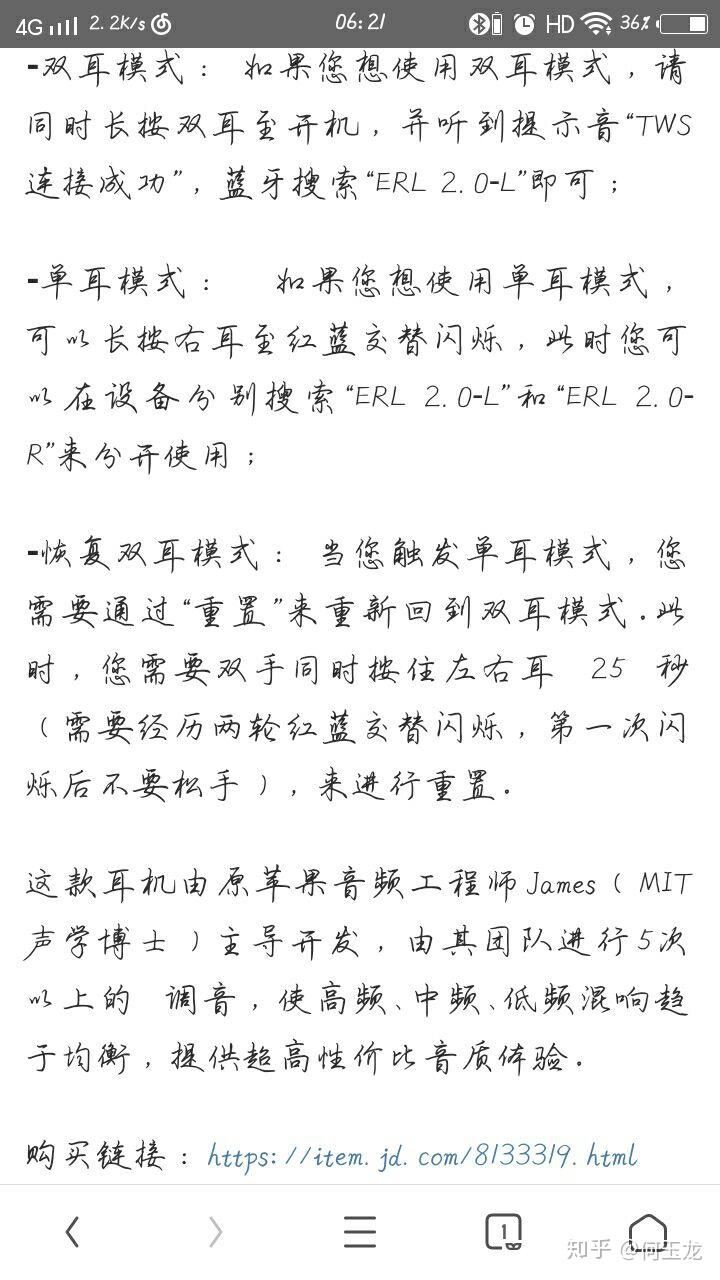 4G 2.2K/s 06:21 HD 36%
-双耳模式： 如果您想使用双耳模式，请
同时长按双耳至开机，并听到提示音“TWS
连接成功”，蓝牙搜索“ERL 2.0-L”即可；
-单耳模式： 如果您想使用单耳模式，
可以长按右耳至红蓝交替闪烁，此时您可
以在设备分别搜索“ERL 2.0-L”和“ERL 2.0-
R”来分开使用；
-恢复双耳模式： 当您触发单耳模式，您
需要通过“重置”来重新回到双耳模式。此
时，您需要双手同时按住左右耳 25 秒
（需要经历两轮红蓝交替闪烁，第一次闪
烁后不要松手），来进行重置。
这款耳机由原苹果音频工程师James（MIT
声学博士）主导开发，由其团队进行5次
以上的 调音，使高频、中频、低频混响趋
于均衡，提供超高性价比音质体验。
购买链接：https://item.jd.com/8133319.html
1
知乎 @何玉龙